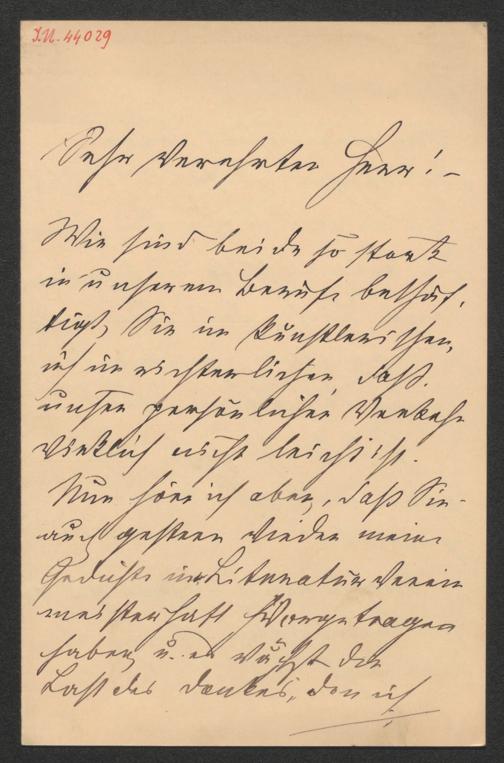 I.N. 44029
Sehr verehrter Herr! –
Wir sind beide so stark
in unserem Berufe bethä-
tigt, Sie im künstlerischen,
ich im richterlichen, daß
unser persönlicher Verkehr
wirklich nicht leicht ist.
Nun höre ich aber, daß Sie
auch gestern wieder meine
Gedichte im Literaturverein
meisterhaft vorgetragen
haben, u. es wächst die
Last des Dankes, den ich